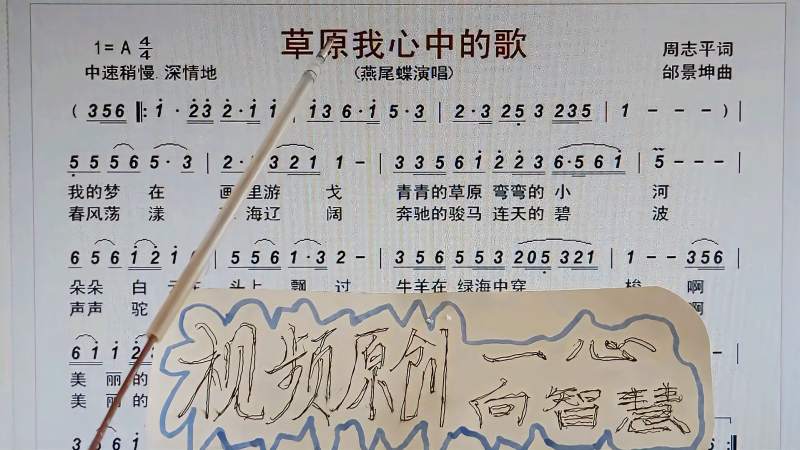 草原我心中的歌
1=A 4/4
中速稍慢 深情地
(燕尾蝶演唱)
周志平词
邰景坤曲
( 356 ‖: 1· 23 2·1 1 | 136 6·1 5·3 | 2·3 25 3 235 | 1 - - - ) |
5 5 56 5·3 | 2·3 321 1 - | 335 61 223 2 | 6·561 | 5 - - - |
我的梦 在 画里游 戈 青青的草原 弯弯的小 河
春风荡 漾 海辽 阔 奔驰的骏马 连天的碧 波
6 56 12 1 | 556 1·3 2 - | 356 553 205 321 | 1 - - 356 |
朵朵 白 头上 飘 过 牛羊在 绿海中穿 梭 啊
声声 驼 啊
6 1 1 2
美 丽 的
美 丽 的
3 5 6 1
视频原创 一心
向智慧